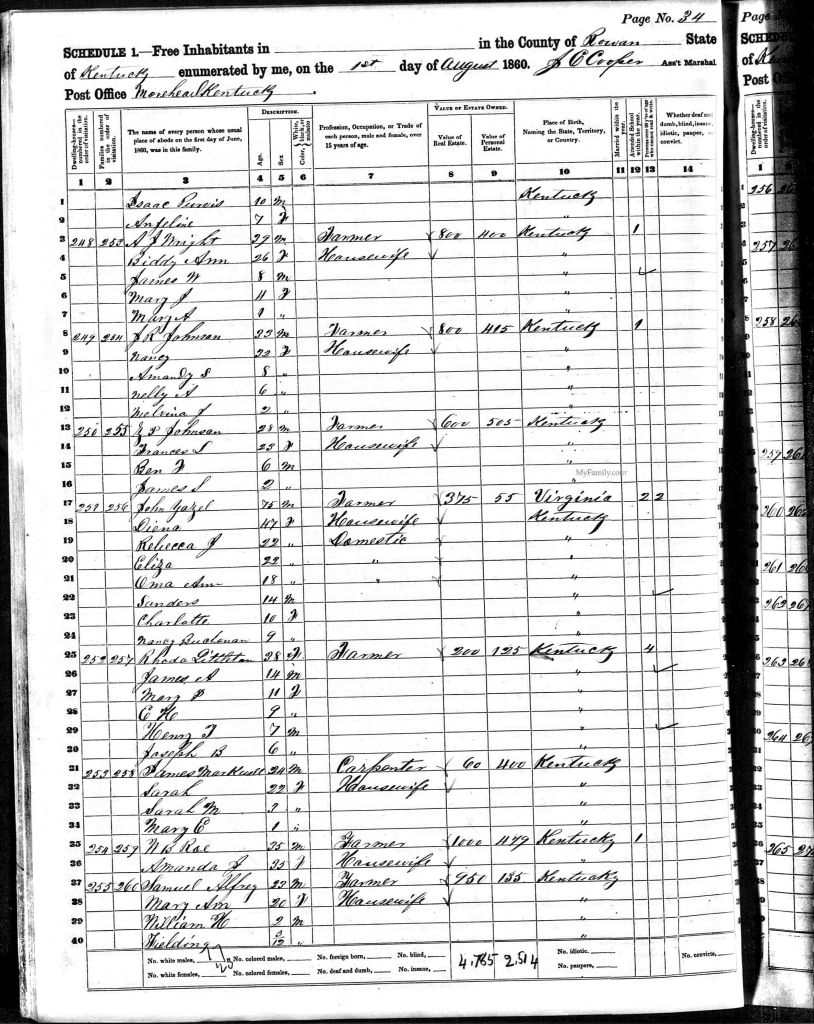 Page No. 34
SCHEDULE 1.—Free Inhabitants in in the County of Rowan State
of Kentucky enumerated by me, on the 1st day of August 1860. J C Cooper Ass't Marshal
Post Office Morehead Kentucky.
DESCRIPTION. VALUE OF ESTATE OWNED.
Dwelling-houses—numbered in the order of visitation. Families numbered in the order of visitation. The name of every person whose usual place of abode on the first day of June, 1860, was in this family. Age. Sex. Color, White, black, or mulatto. Profession, Occupation, or Trade of each person, male and female, over 15 years of age. Value of Real Estate. Value of Personal Estate. Place of Birth, Naming the State, Territory, or Country. Married within the year. Attended School within the year. Whether deaf and dumb, blind, insane, idiotic, pauper, or convict.
1 2 3 4 5 6 7 8 9 10 11 12 13 14
1 Isaac Purvis 10 m Kentucky
2 Angeline 7 F "
3 248 253 A J Wright 29 m Farmer 800 400 Kentucky 1
4 Biddy Ann 26 F Housewife "
5 James W 8 m "
6 Mary J 11 F "
7 Mary A 1 " "
8 249 254 J R Johnson 33 m Farmer 800 415 Kentucky 1
9 Nancy 22 F Housewife "
10 Amandy S 8 " "
11 Nelly A 6 " "
12 Melvina J 2 " "
13 250 255 Johnson 28 m Farmer 600 505 Kentucky
14 Frances L 23 F Housewife "
15 Ben F 6 m "
16 James S 2 " "
MyFamily.com
17 251 256 John Gazel 75 m Farmer 375 55 Virginia 2 2
18 Diena 47 F Housewife Kentucky
19 Rebecca J 22 " Domestic "
20 Eliza 22 " " "
21 Oma Ann 18 " " "
22 Sanders 14 m "
23 Charlotte 10 F "
24 Nancy Buchenan 9 " "
25 252 257 Rhoda Littleton 38 F Farmer 200 125 Kentucky 4
26 James A 14 m "
27 Mary P 11 F "
28 E H 9 " "
29 Henry T 7 m "
30 Joseph B 6 " "
31 253 258 James Markwell 24 m Carpenter 60 400 Kentucky
32 Sarah 22 F Housewife "
33 Sarah M 3 " "
34 Mary E 1 " "
35 254 259 Rae 35 m Farmer 1000 479 Kentucky 1
36 Amanda J 35 F Housewife "
37 255 260 Samuel Alfrey 23 m Farmer 950 135 Kentucky
38 Mary Ann 20 F Housewife "
39 William H 2 m "
40 Fielding 3/12 " "
No. white males, No. colored males, No. foreign born, No. blind, 4,785 2,514 No. idiotic. No. convicts,
No. white females, No. colored females, No. deaf and dumb, No. insane, No. paupers,